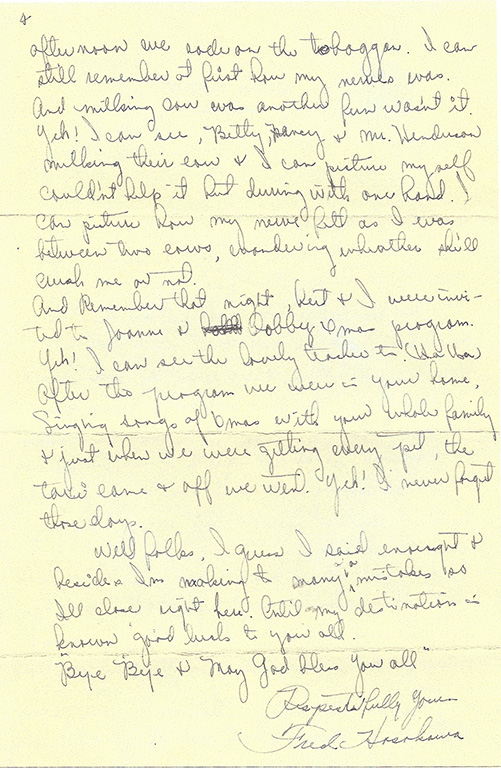 4
afternoon we rode on the toboggan. I can
still remember at first how my nerves was.
And milking cow was another fun wasn't it.
Yeh! I can see, Betty, Nancy & Mr. Henderson
milking their cow & I can picture myself
couldn't help it but during with one hand. I
can picture how my nerve felt as I was
between two cows, wondering wheather she'll
crush me or not.
And Remember that night, Kert & I were invi-
ted to Joanne & Bobby Xmas program.
Yeh! I can see the lovely teacher to. (Ha Ha)
After the program we were in your home,
Singing songs of Xmas with your whole family
& just when we were getting every pep, the
taxi came & off we went. Yeh! I never forget
those days.
Well folks, I guess I said enought &
besides I'm making to many mistakes so
I'll close right here. Until my destination is
known good luck to you all.
"Bye Bye & May God bless you all"
Respectifully yours
Fred Hosokawa